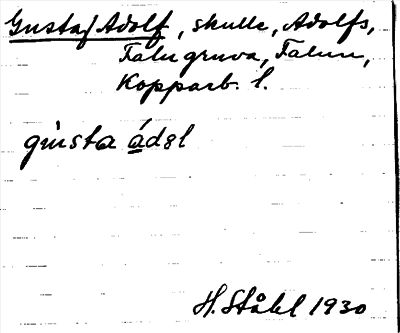 Gustaf Adolf, skulle, Adolfs,
Falu gruva, Falun,
Kopparb. l.
gùsta ádəl
H. Ståhl 1930